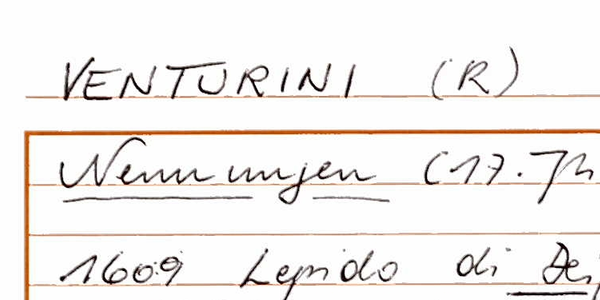 VENTURINI (R)
Nennungen (17. Jh
1609 Lepido di